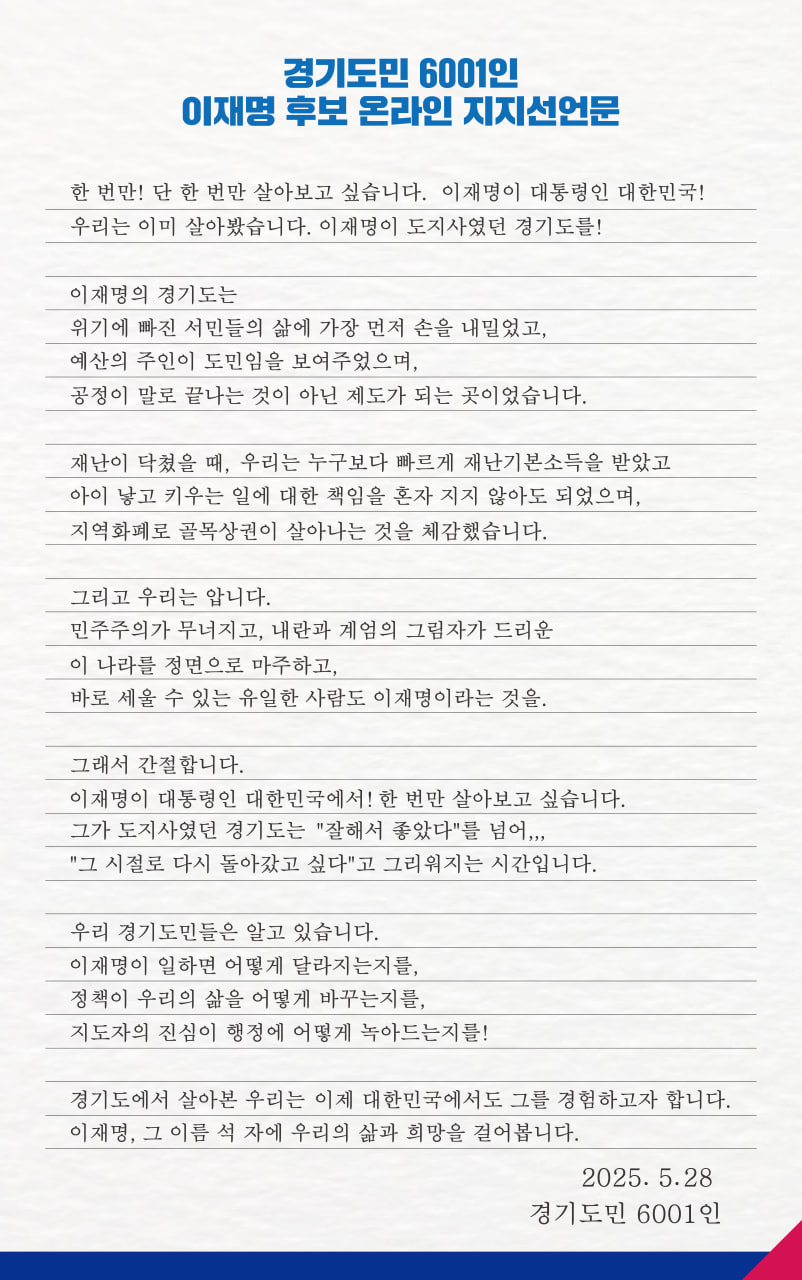 경기도민 6001인
이재명 후보 온라인 지지선언문
한 번만! 단 한 번만 살아보고 싶습니다. 이재명이 대통령인 대한민국!
우리는 이미 살아봤습니다. 이재명이 도지사였던 경기도를!
이재명의 경기도는
위기에 빠진 서민들의 삶에 가장 먼저 손을 내밀었고,
예산의 주인이 도민임을 보여주었으며,
공정이 말로 끝나는 것이 아닌 제도가 되는 곳이었습니다.
재난이 닥쳤을 때, 우리는 누구보다 빠르게 재난기본소득을 받았고
아이 낳고 키우는 일에 대한 책임을 혼자 지지 않아도 되었으며,
지역화폐로 골목상권이 살아나는 것을 체감했습니다.
그리고 우리는 압니다.
민주주의가 무너지고, 내란과 계엄의 그림자가 드리운
이 나라를 정면으로 마주하고,
바로 세울 수 있는 유일한 사람도 이재명이라는 것을.
그래서 간절합니다.
이재명이 대통령인 대한민국에서! 한 번만 살아보고 싶습니다.
그가 도지사였던 경기도는 "잘해서 좋았다"를 넘어,,,
"그 시절로 다시 돌아갔고 싶다"고 그리워지는 시간입니다.
우리 경기도민들은 알고 있습니다.
이재명이 일하면 어떻게 달라지는지를,
정책이 우리의 삶을 어떻게 바꾸는지를,
지도자의 진심이 행정에 어떻게 녹아드는지를!
경기도에서 살아본 우리는 이제 대한민국에서도 그를 경험하고자 합니다.
이재명, 그 이름 석 자에 우리의 삶과 희망을 걸어봅니다.
2025. 5.28
경기도민 6001인